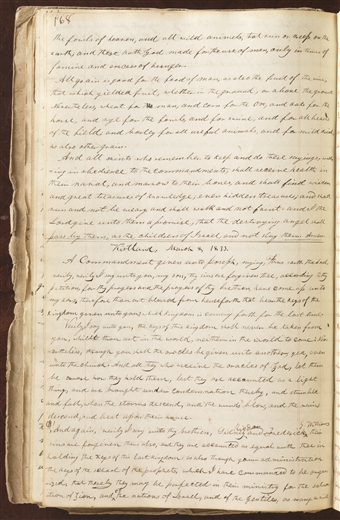 168
the fowls of heaven, and all wild animals, that run or creep on the
earth, and these hath God made for the use of man, only in times of
famine and excess of hunger.
All grain is good for the food of man, as also the fruit of the vine,
that which yieldeth fruit, whether in the ground, or above the ground
Nevertheless, wheat for the man, and corn for the ox, and oats for the
horse, and rye for the fowls, and for swine, and for all beasts
of the field, and barley for all useful animals, and for mild drinks
as also other grain.
And all saints who remember to keep and do these sayings, walk
ing in obedience to the commandments, shall receive health in
their navel, and marrow to their bones, and shall find wisdom
and great treasures of knowledge, even hidden treasures, and shall
run and not be weary and shall walk and not faint: and I the
Lord give unto them a promise, that the destroying angel shall
pass by them, as the children of Israel, and not slay them. Amen
Kirtland, March 8, 1833.
A Commandment given unto Joseph, saying, Thus saith the Lord,
verily, verily I say unto you, my son, thy sins are forgiven thee, according to thy
petition, for thy prayers and the prayers of thy brethren have come up into
my ears, therefore thou art blessed from henceforth that bear the keys of the
kingdom given unto you; which kingdom is coming forth for the last time.
Verily I say unto you, the keys of this kingdom shall never be taken from
you, whilst thou art in the world, neither in the world to come: Nev
ertheless, through you shall the oracles be given unto another, yea, even
unto the church. And all they who receive the oracles of God, let them
be aware how they hold them, lest they are accounted as a light
thing, and are brought under condemnation thereby, and stumble
and fall, when the storms descend, and the winds blow, and the rains
descend, and beat upon their house.
And again, verily I say unto thy brethren, Sidney and Frederick, their
sins are forgiven them also, and they are accounted as equal with thee in
holding the keys of this last kingdom: as also through your administration
the keys of the school of the prophets, which I have commanded to be organ
ized, that thereby they may be perfected in their ministry for the salva
tion of Zion, and of the nations of Israel, and of the Gentiles, as many as will